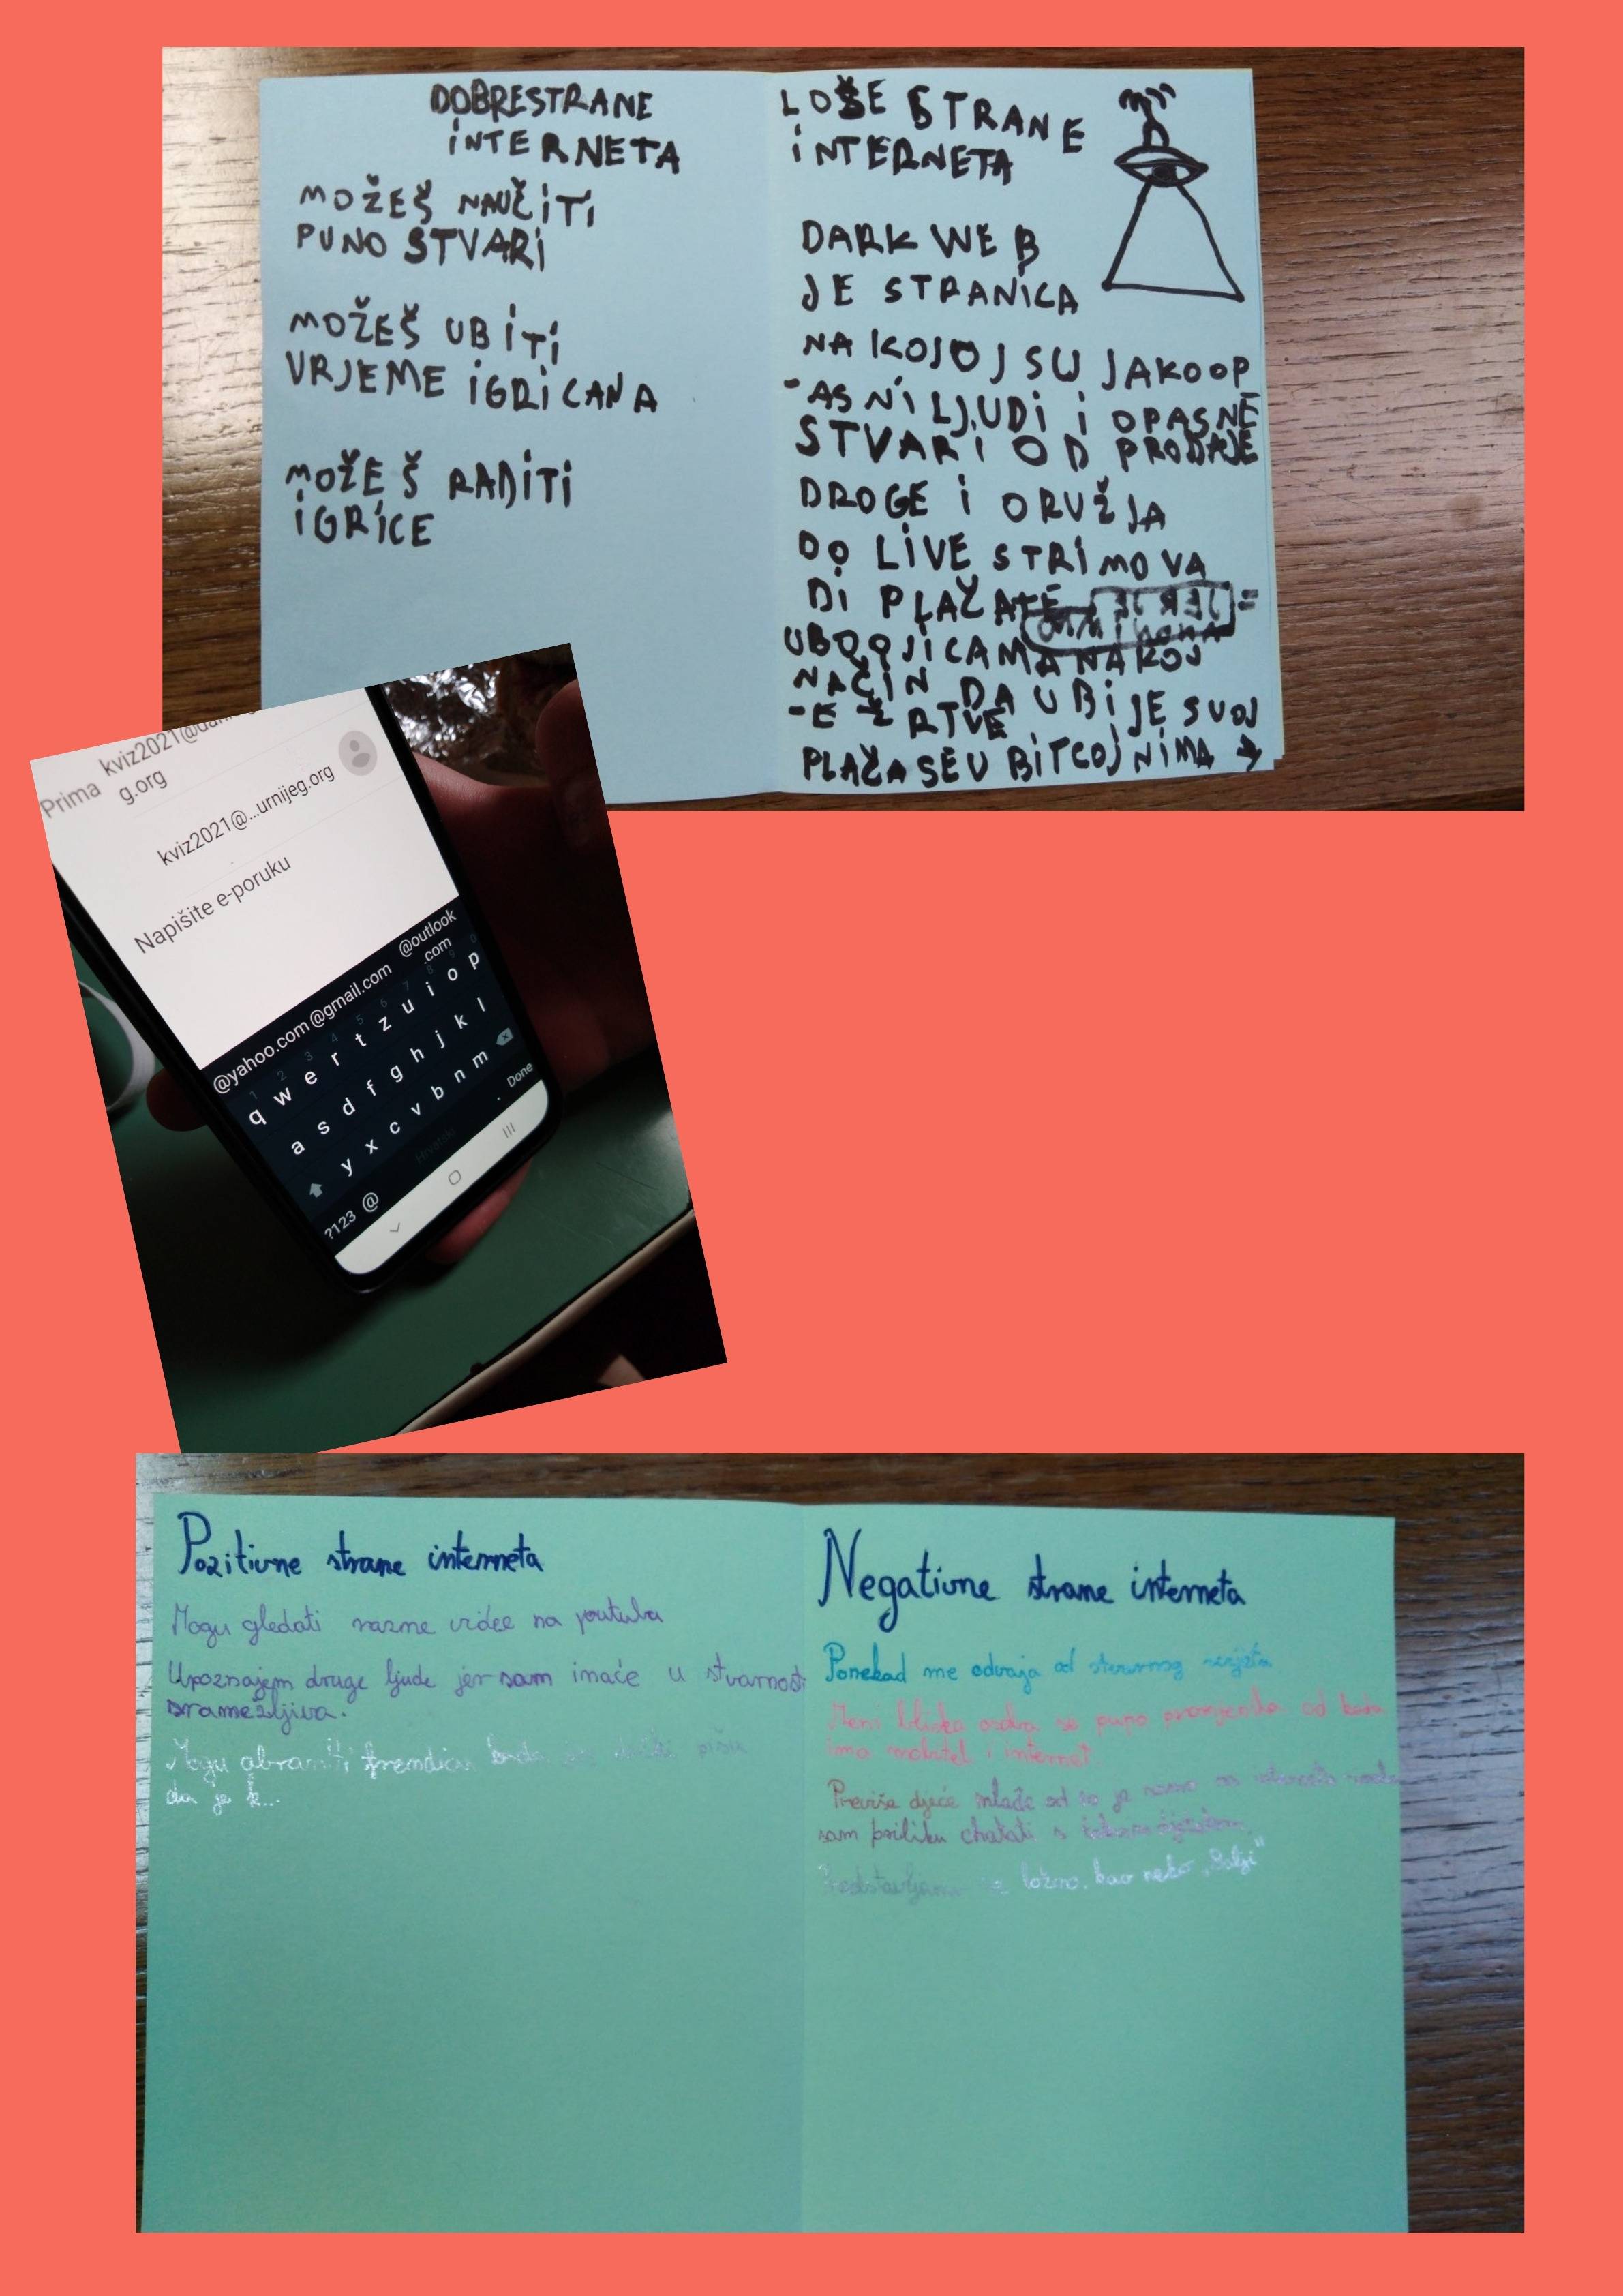 DOBRESTRANE
INTERNETA
MOŽEŠ NAUČITI
PUNO STVARI
MOŽEŠ UBITI
VRJEME IGRICAMA
MOŽEŠ RADITI
IGRICE
LOŠE STRANE
INTERNETA
DARK WEB
JE STRANICA
NA KOJOJ SU JAKO OP
-ASNI LJUDI I OPASNE
STVARI OD PRODAJE
DROGE I ORUŽJA
DO LIVE STRIMOVA
DI PLAČATE
UBOJICAMA NA KOJ
NAČIN DA UBIJE SVOJ
-E ŽRTVE
PLAČA SE U BITCOJNIMA →
Prima kviz2021@
g.org
kviz2021@...urnijeg.org
Napišite e-poruku
@yahoo.com @gmail.com @outlook
.com
1 2 3 4 5 6 7 8 9 0
q w e r t z u i o p
a s d f g h j k l
y x c v b n m
?123 @ Hrvatski . Done
Pozitivne strane interneta
Mogu gledati razne videe na youtubu
Upoznajem druge ljude jer sam inače u stvarnosti
sramežljiva.
Mogu obraniti frendicu kada pišu
da je k...
Negativne strane interneta
Ponekad me odvaja od stvarnog svijeta
Meni bliska osoba se puno promjenila od kada
ima mobitel i internet.
Previše djece mlađe od
sam priliku chatati s
Predstavljanje se lažno, kao neko